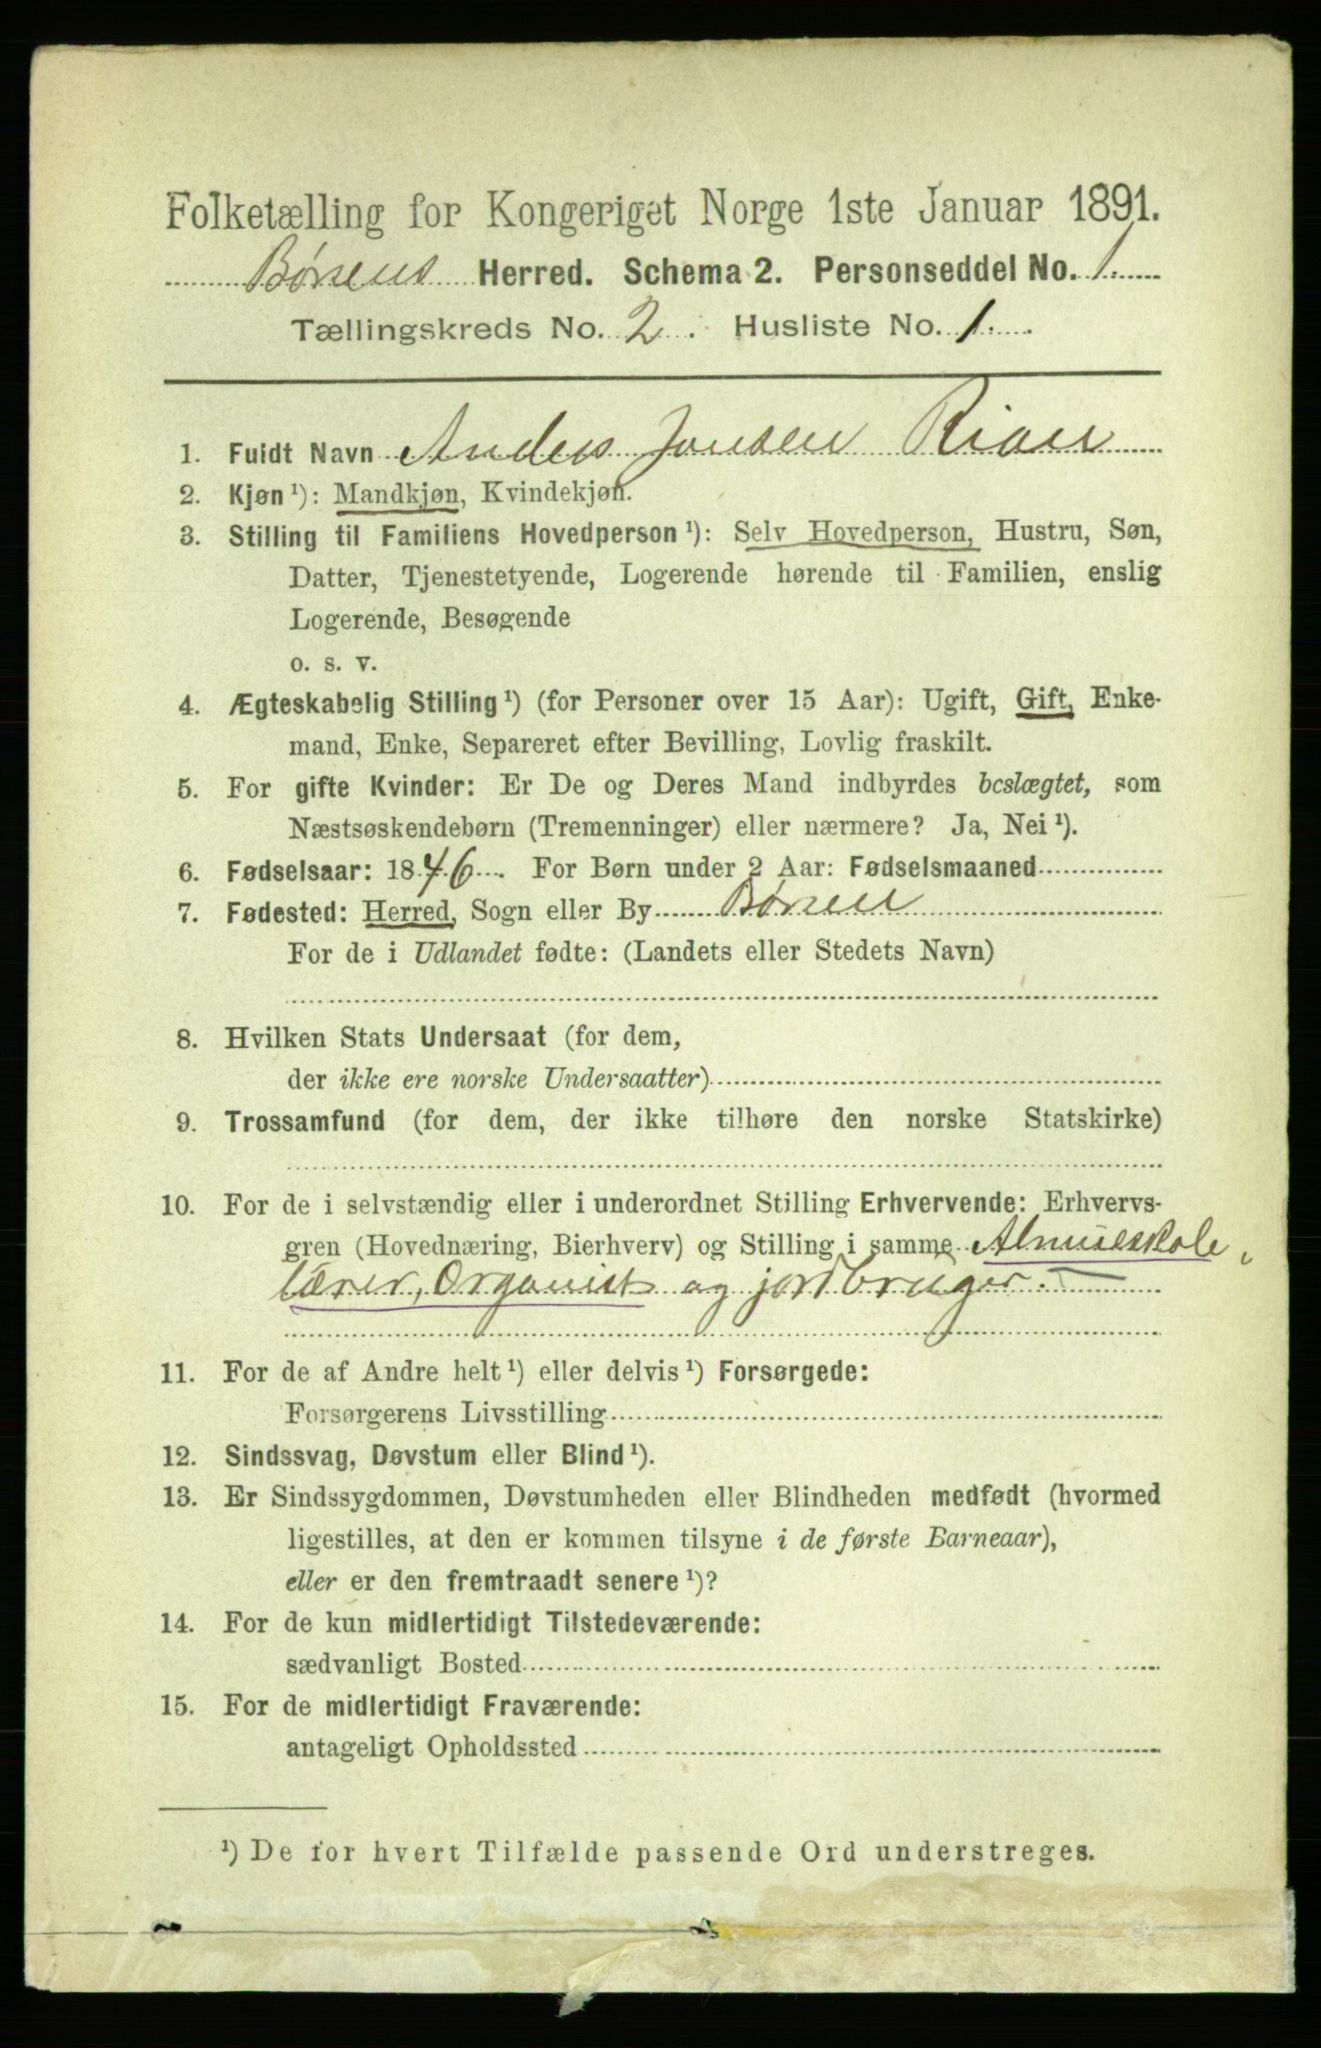 Folketælling for Kongeriget Norge 1ste Januar 1891.
Børsens Herred. Schema 2. Personseddel No. 1.
Tællingskreds No. 2. Husliste No. 1.
1. Fuldt Navn Anders Jonsen Rian
2. Kjøn ¹): Mandkjøn, Kvindekjøn.
3. Stilling til Familiens Hovedperson ¹): Selv Hovedperson, Hustru, Søn,
Datter, Tjenestetyende, Logerende hørende til Familien, enslig
Logerende, Besøgende
o. s. v.
4. Ægteskabelig Stilling ¹) (for Personer over 15 Aar): Ugift, Gift, Enke-
mand, Enke, Separeret efter Bevilling, Lovlig fraskilt.
5. For gifte Kvinder: Er De og Deres Mand indbyrdes beslægtet, som
Næstsøskendebørn (Tremenninger) eller nærmere? Ja, Nei ¹).
6. Fødselsaar: 1846. For Børn under 2 Aar: Fødselsmaaned
7. Fødested: Herred, Sogn eller By Børsen
For de i Udlandet fødte: (Landets eller Stedets Navn)
8. Hvilken Stats Undersaat (for dem,
der ikke ere norske Undersaatter)
9. Trossamfund (for dem, der ikke tilhøre den norske Statskirke)
10. For de i selvstændig eller i underordnet Stilling Erhvervende: Erhvervs-
gren (Hovednæring, Bierhverv) og Stilling i samme Almueskole
lærer, Organist og jordbruger. —
11. For de af Andre helt ¹) eller delvis ¹) Forsørgede:
Forsørgerens Livsstilling
12. Sindssvag, Døvstum eller Blind ¹).
13. Er Sindssygdommen, Døvstumheden eller Blindheden medfødt (hvormed
ligestilles, at den er kommen tilsyne i de første Barneaar),
eller er den fremtraadt senere ¹)?
14. For de kun midlertidigt Tilstedeværende:
sædvanligt Bosted
15. For de midlertidigt Fraværende:
antageligt Opholdssted
¹) De for hvert Tilfælde passende Ord understreges.